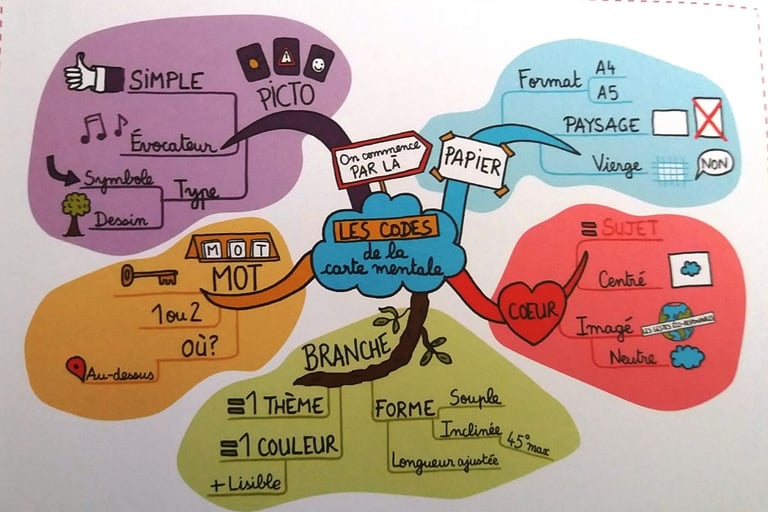 LES CODES
de la
carte mentale
On commence
PAR LÀ
PAPIER
Format
A4
A5
PAYSAGE
Vierge
NON
COEUR
= SUJET
Centré
Imagé
LES GESTES ÉCO-RESPONSABLES
Neutre
BRANCHE
FORME
Souple
Inclinée
45° max
Longueur ajustée
=1 THÈME
=1 COULEUR
+ Lisible
MOT
MOT
1 ou 2
OÙ?
Au-dessus
PICTO
SIMPLE
Évocateur
Type
Symbole
Dessin